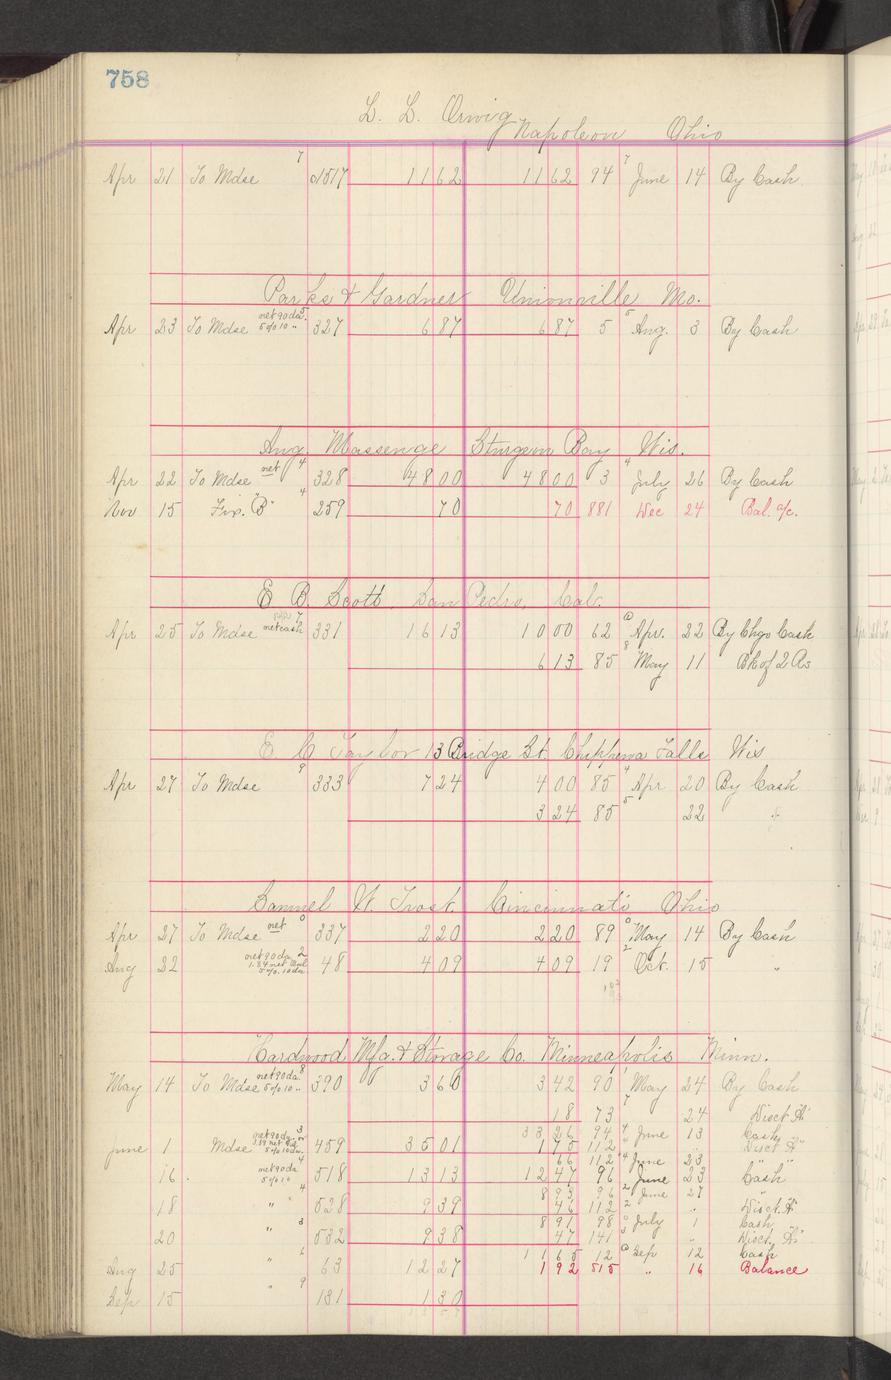 758
L. L. Orwig
Napoleon Ohio
Apr 21 To Mdse 7 01517 11 62 11 62 94 7 June 14 By Cash
Parks & Gardner Unionville Mo.
Apr 23 To Mdse net 90 da. 5% 10 " 5 327 6 87 6 87 5 5 Aug. 3 By Cash
Aug. Massenge Sturgeon Bay Wis.
Apr 22 To Mdse net 4 328 48 00 48 00 3 4 July 26 By Cash
Nov 15 Fix. "B" 4 259 70 70 881 Dec 24 Bal. a/c.
E. B. Scott. San Pedro, Cal.
Apr 25 To Mdse net cash 7 331 16 13 10 00 62 Apr. 22 By Chgo Cash
6 13 85 8 May 11 Bk of 2 As
E C Taylor 13 Bridge St. Chippewa Falls Wis
Apr 27 To Mdse 9 333 7 24 4 00 85 4 Apr 20 By Cash
3 24 85 5 22 "
Samuel W. Trost. Cincinnati Ohio
Apr 27 To Mdse net 0 337 2 20 2 20 89 0 May 14 By Cash
Aug 22 net 90 da 5% 10 da 2 48 4 09 4 09 19 2 Oct. 15 "
Hardwood Mfg. & Storage Co. Minneapolis Minn.
May 14 To Mdse net 90 da. 5% 10 " 8 390 3 60 3 42 90 1 May 24 By Cash
18 73 7 24 Disct "A"
33 26 94 4 June 13 Cash
June 1 Mdse net 90 da. 5% 10 da. 3 459 35 01 1 75 112 " " Disct "A"
66 112 4 June 23 " "
16 net 90 da 5% 10 4 518 13 13 12 47 96 " June 23 Cash
8 93 96 2 June 27 "
18 " " 4 528 9 39 46 112 2 " Disct. "A"
8 91 98 0 July 1 Cash
20 " 3 532 9 38 47 141 3 " Disct. "A"
11 65 12 Sep 12 Cash
Aug 25 " 6 63 12 27 1 92 515 " 16 Balance
Sep 15 " 9 181 1 30